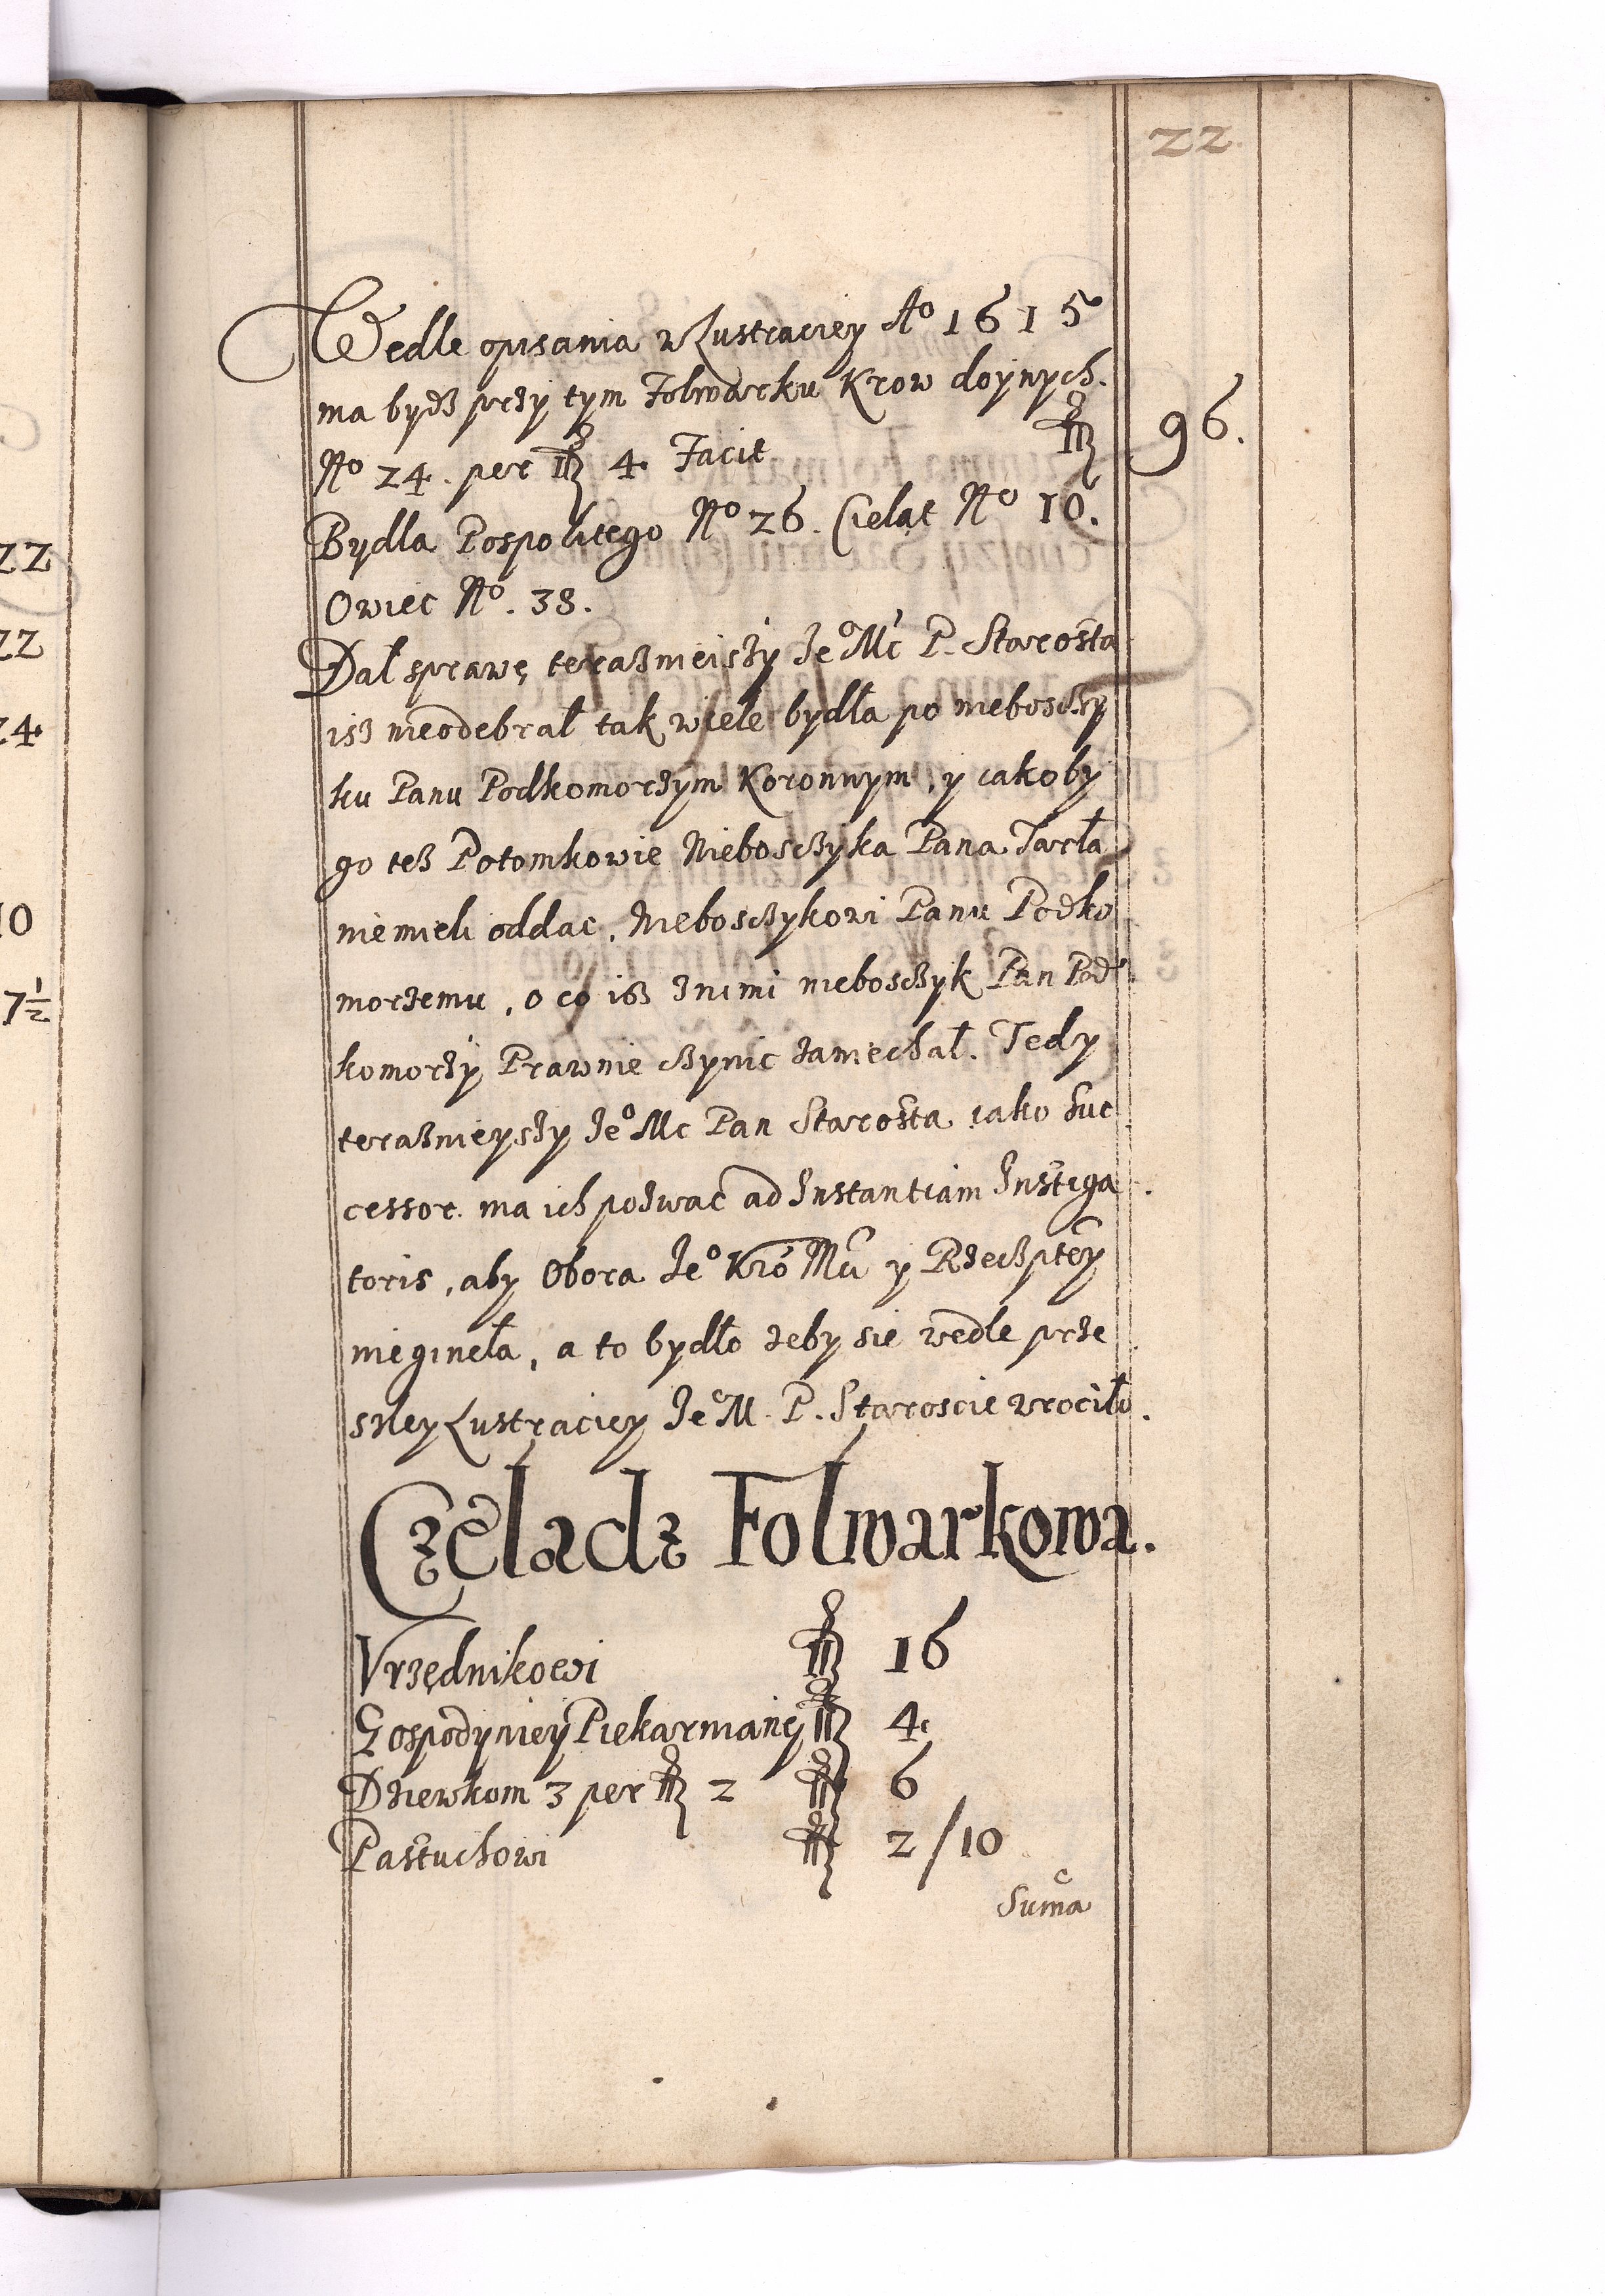 22.
Wedle opisania w Lustraciey Aº 1615
ma bydź przy tym Folwarku Krow doynych.
Nº 24. per fl 4. Facit fl 96.
Bydla Pospolitego Nº 26. Cieląt Nº 10.
Owiec Nº. 38.
Dał sprawę teraznieiszy Jeº Mć P. Starosta
isz nieodebrał tak wiele bydła po nieboszczy
ku Panu Podkomorzym Koronnym, y iakoby
go tesz Potomkowie Nieboszczyka Pana Tarła
niemieli oddac, Nieboszczykowi Panu Podko
morzemu, o co isz znimi nieboszczyk Pan Pod
komorzy Prawnie czynic zaniechał. Tedy
teraznieyszy Jeº Mc Pan Starosta iako Suc
cessor. ma ich pozwac ad Instantiam Instiga
toris, aby Obora Jeº Kró Mći y Rzeczptey
niegineła, a to bydło zeby sie wedle prze
szłey Lustraciey Je M. P. Staroscie wrociło.
Czeladz Folwarkowa.
Vrzędnikowi fl 16
Gospodyniey Piekarnianey fl 4.
Dziewkom 3 per fl 2 fl 6
Pastuchowi fl 2/10
Suma
22
22
24
10
7½